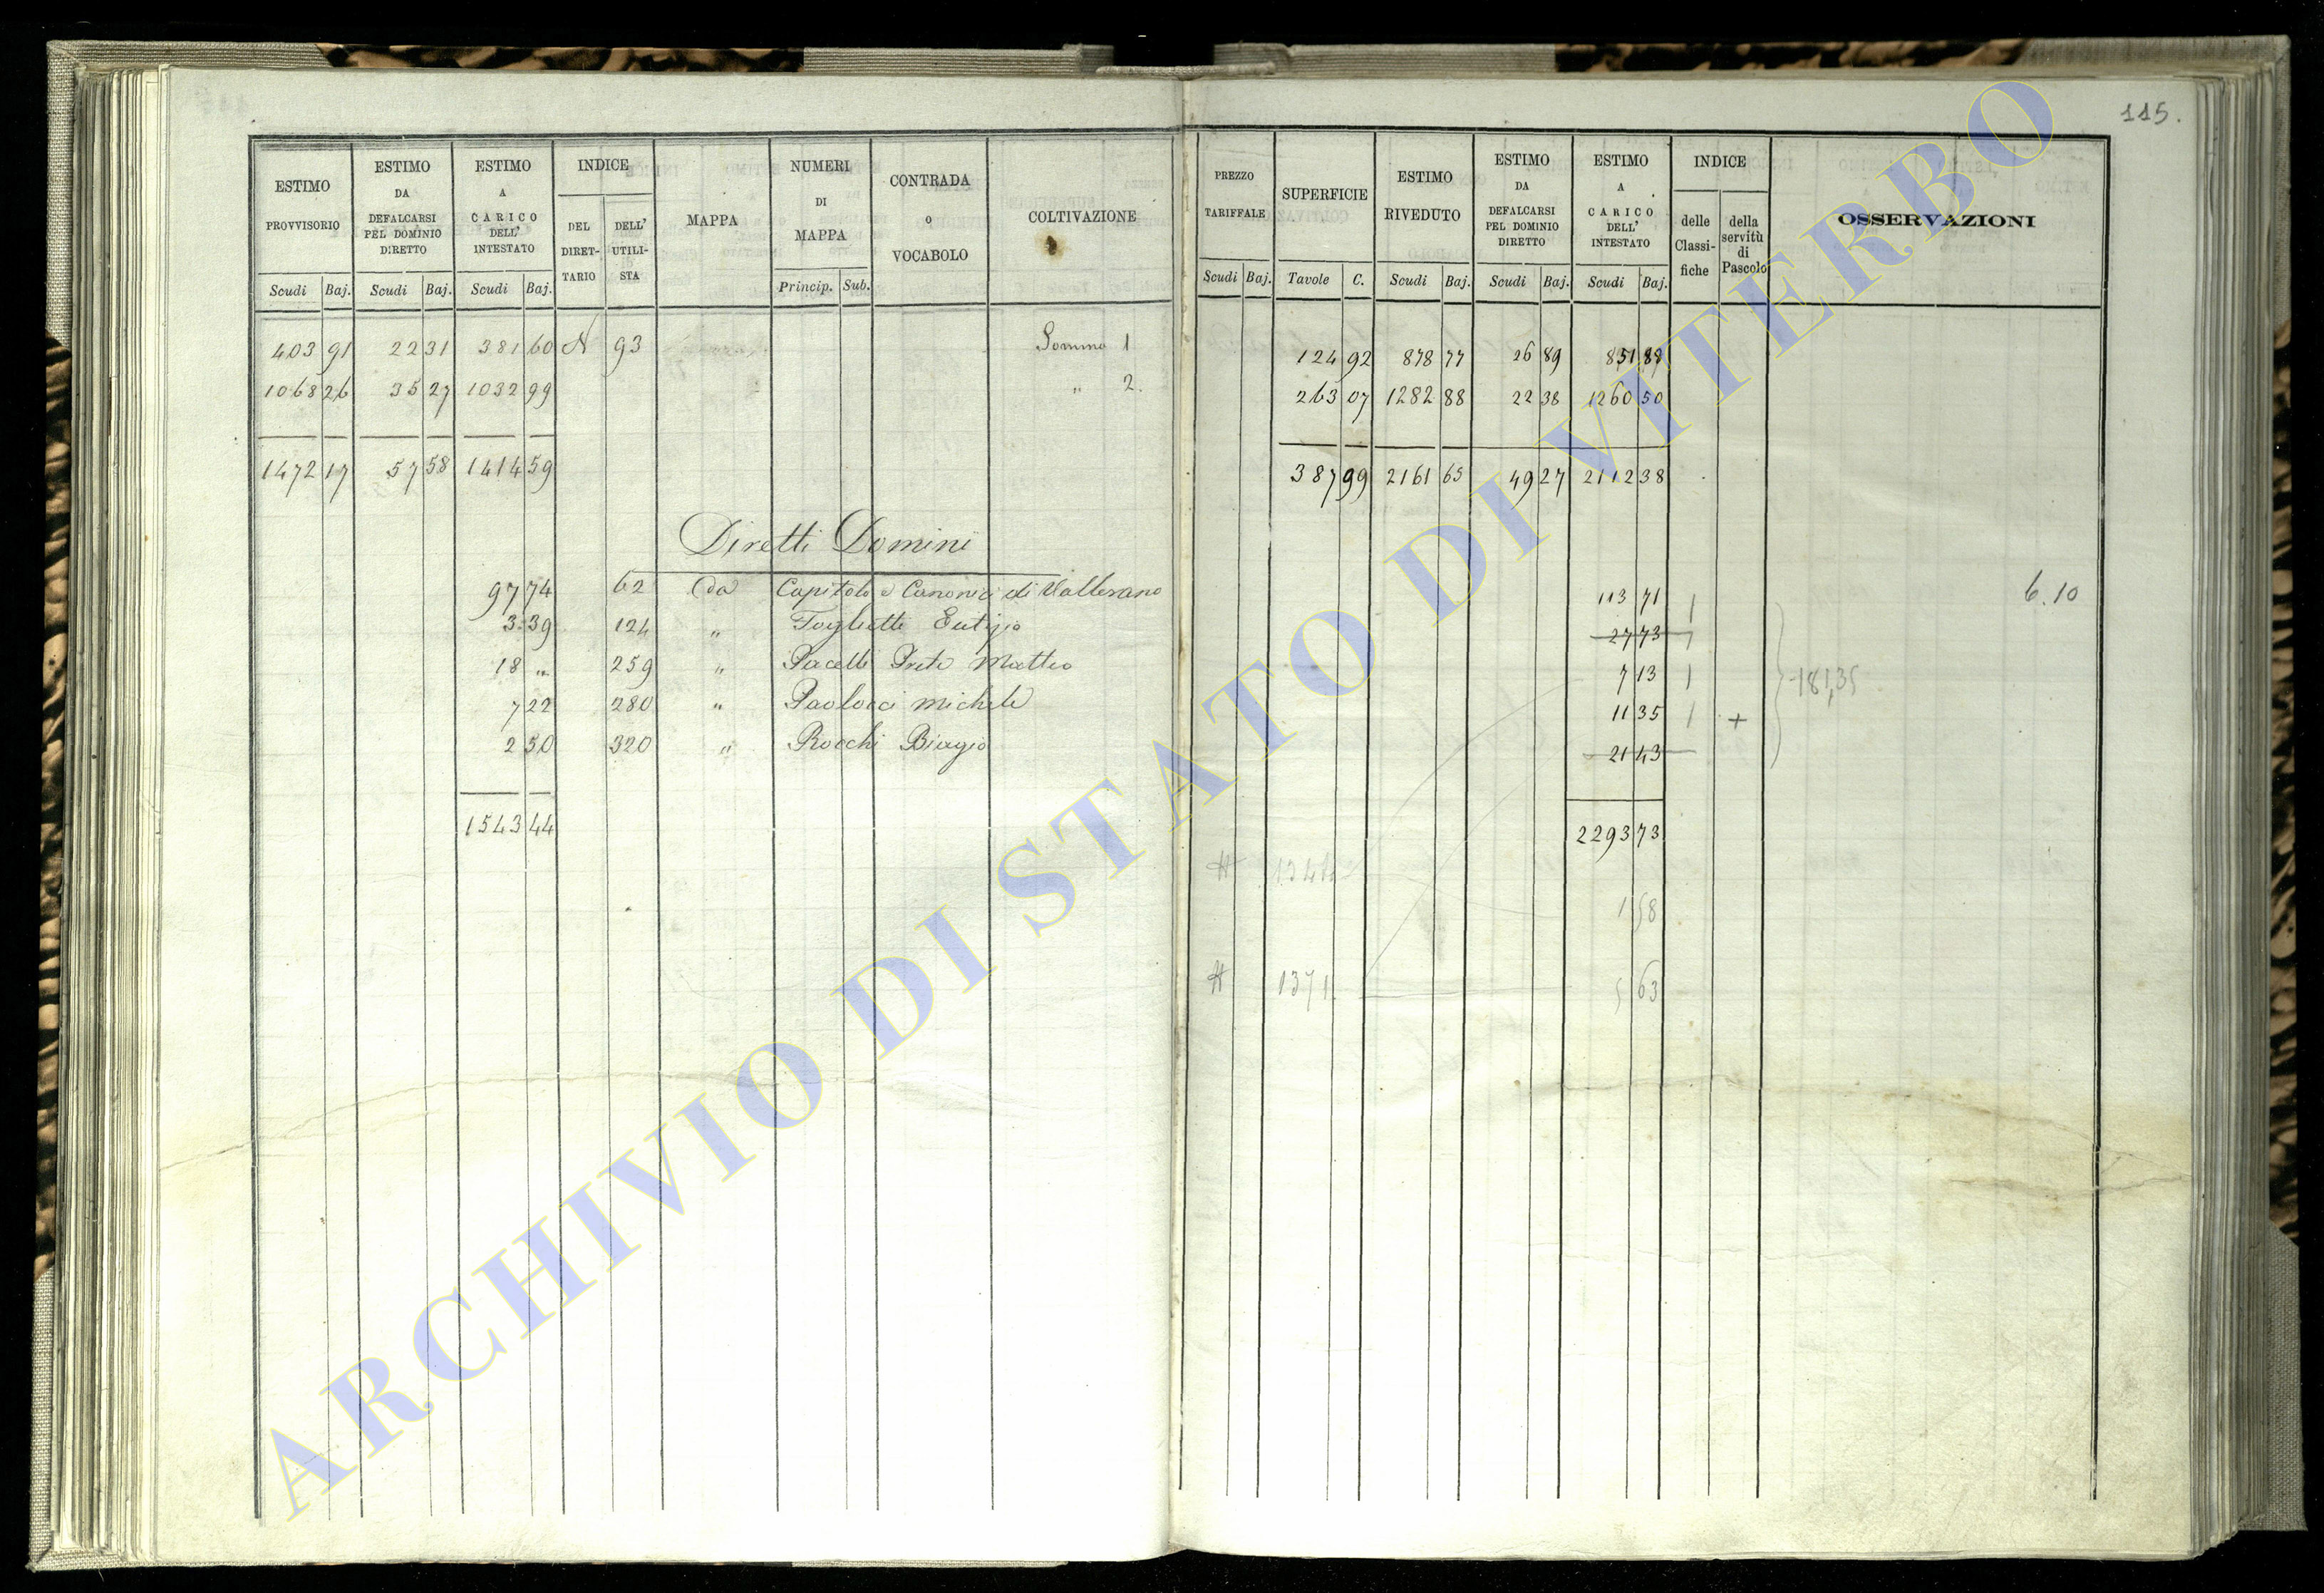 115.
ESTIMO PROVVISORIO Scudi Baj.
ESTIMO DA DEFALCARSI PEL DOMINIO DIRETTO Scudi Baj.
ESTIMO A CARICO DELL' INTESTATO Scudi Baj.
INDICE DEL DIRET-TARIO DELL' UTILI-STA
MAPPA
NUMERI DI MAPPA Princip. Sub.
CONTRADA O VOCABOLO
COLTIVAZIONE
PREZZO TARIFFALE Scudi Baj.
SUPERFICIE Tavole C.
ESTIMO RIVEDUTO Scudi Baj.
ESTIMO DA DEFALCARSI PEL DOMINIO DIRETTO Scudi Baj.
ESTIMO A CARICO DELL' INTESTATO Scudi Baj.
INDICE delle Classi-fiche della servitù di Pascolo
OSSERVAZIONI
403 91 22 31 381 60 N 93 Somma 1 124 92 878 77 26 89 851 88
1068 26 35 27 1032 99 " 2. 263 07 1282 88 22 38 1260 50
1472 17 57 58 1414 59 387 99 2161 65 49 27 2112 38
Diretti Domini
97 74 62 da Capitolo e Canonici di Vallerano 113 71 6.10
3 39 124 " Foglietti Eutizio 27 73
18 " 259 " Pacelli Prete Matteo 7 13 181,35
7 22 280 " Paolocci Michele 11 35 +
2 50 320 " Rocchi Biagio 21 43
1543 44 2293 73
1 58
1371 5 63
ARCHIVIO DI STATO DI VITERBO